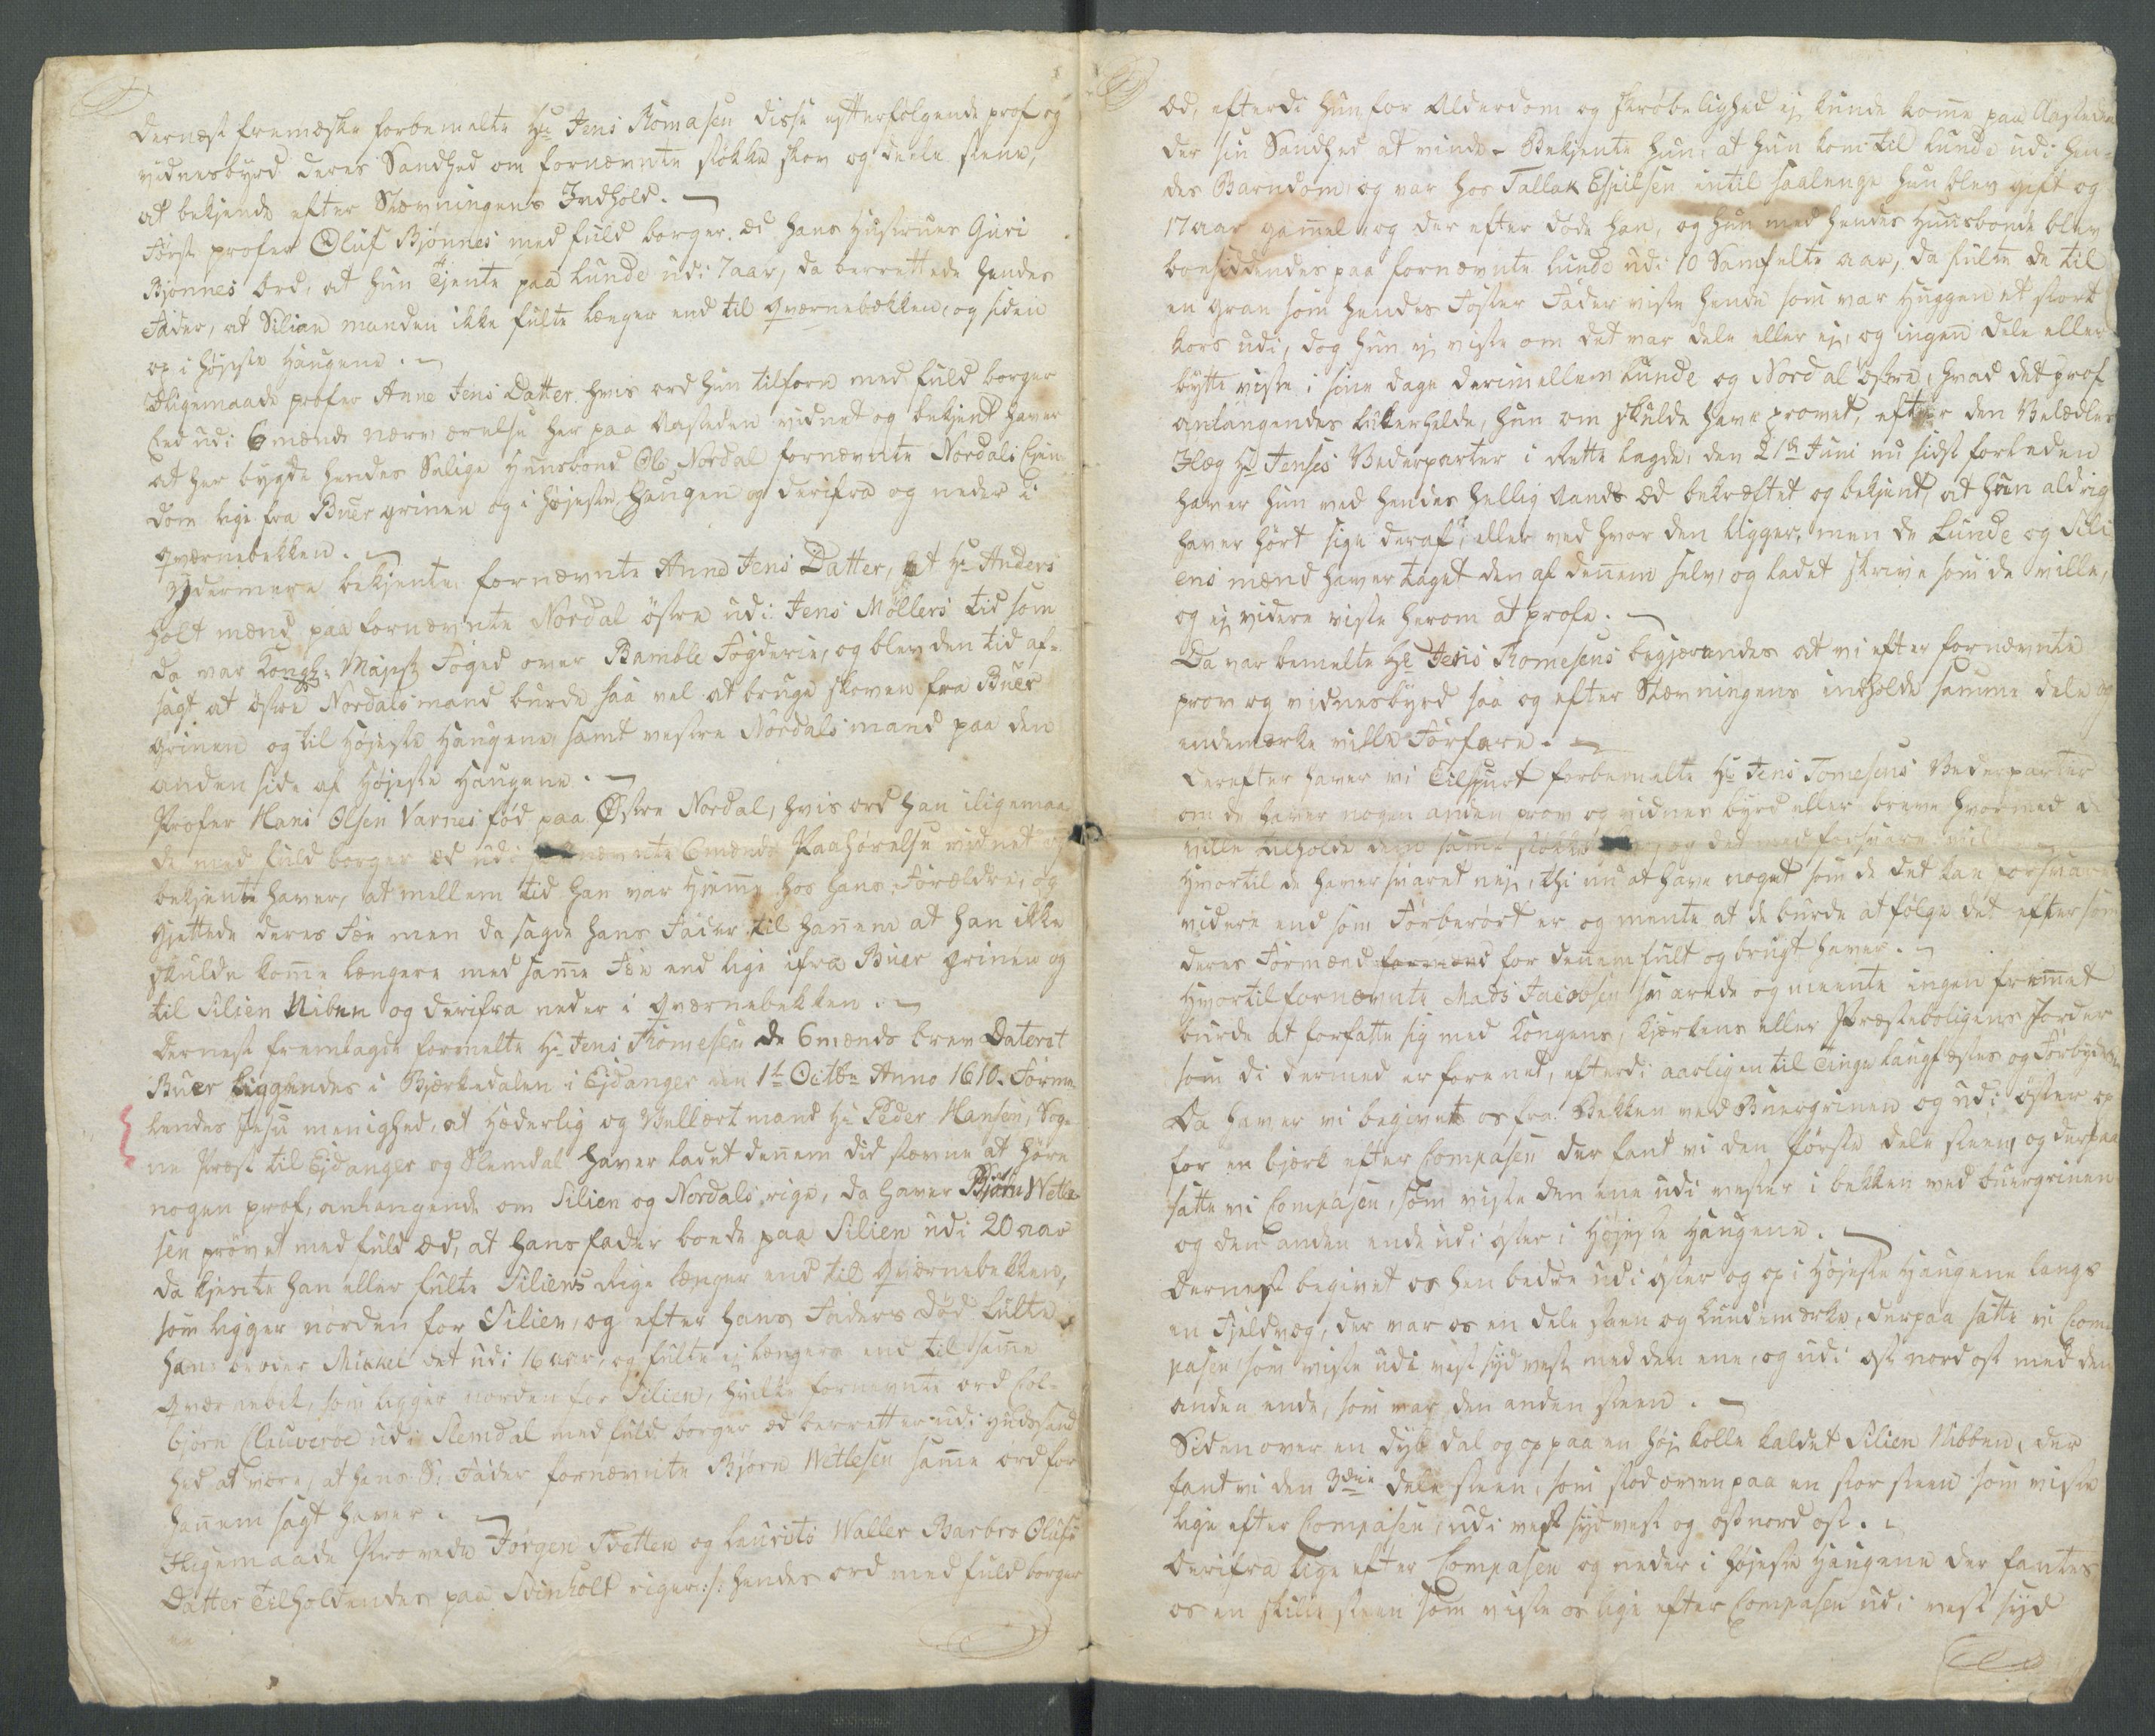 dernæst fremæske forbemelte Hr Jens Thomasen disse effterfølgende prof og
vidnesbyrd deres Sandhed om fornævnte støkke skov og deele steene,
at bekjende efter Stævningens Indhold. -
Først profer Oluf Bjønnes med fuld borger æd hans Hustrues Guri
Bjønnes Ord, at hun tjente paa Lunde udi 7 aar, da berettede hendes
Fader, at Silian manden ikke fulte længer end til qværnebekken, og siden
op i højeste Haugene. -
Iligemaade profer Anne Jens Datter hvis ord hun tilforn med fuld borger
Eed udi 6 mænds nærværelse her paa Aasteden vidnet og bekjent haver
at her bygde hendes Salige Huusbond Ole Nordal fornævnte Nordals Ejen
dom lige fra Buer grinen og i højeste Haugen og derifra og neder i
qværnebekken. -
Ydermere bekjente fornævnte Anne Jens Datter, at Hr Anders
holt mænd paa fornævnte Nordal østre udi Jens Møllers tid som
da var Kongl: Majest Foged over Bamble Fogderie, og blev den tid af-
sagt at østre Nordals mand burde saa vel at bruge skoven fra Buer
Grinen og til Højeste Haugene, samt vestre Nordals mand paa den
anden side af Højeste Haugene. -
Profer Hans Olsen Varnes fød paa Østre Nordal, hvis ord han iligemaa
de med fuld borger æd udi fornævnte 6 mænds Paahørelse vidnet og
bekjente haver, at mellem tid han var Hjeme hos hans Forældre, og
gjettede deres Fæe men da sagde hans Fader til hanem at han ikke
skulde kome længere med same Fæe end lige ifra Buer grinen og
til Silien Niben og derifra neder i qværnebekken. -
Dernest fremlagde formelte Hr Jens Thomesen de 6 mænds brev Daterit
Buer liggendes i Bjørkedalen i Ejdanger den 1te Octbr Anno 1610. Forme
lendes Jesu menighed, at Hæderlig og Vellært mand Hr Peder Hansen, Sog-
ne Præst til Ejdanger og Slemdal haver ladet dennem did stævne at høre
nogen prof, anlangende om Silien og Nordals rige, da haver Bjørn Wetle-
sen prøvet med fuld æd, at hans fader boede paa Silien udi 20 aar
da kjente han eller fulte Siliens Rige længer end til Qværnebekken,
som ligger norden for Silien, og efter hans Faders død fulte
hans broder Mickel det udi 16 aar, og fulte ej længere end til same
Qværnebek, som ligger norden for Silien, hvilke fornevnte ord Col-
bjørn Clauverøe udi Slemdal med fuld borger æd berretter udi Gudssand
hed at være, at hans S: Fader fornævnte Bjørn Wetlesen same ord for
hanem sagt haver. -
Iligemaade Provede Jørgen Tvetten og Lauritz Waller Barbro Olufs
Datter Tilholdendes paa Svinholt riger :/: hendes ord med fuld borger
æd, efterdi hun for Alderdom og skrøbelighed ej kunde kome paa Aasteden
der sin Sandhed at vinde - Bekjente hun, at hun kom til Lunde udi hen-
des Barndom, og var hos Tallak Espilsen intil saalenge hun blev gift og
17 aar gamel og der efter døde han, og hun med hendes Huusbonde blev
boesiddendes paa fornævnte Lunde udi 10 Samfelte aar, da fulte de til
en gran som hendes Foster Fader viste hende som var huggen et stort
kors udi, dog hun ej viste om det var dele eller ej, og ingen dele eller
bytte viste i sine dage derimellem Lunde og Nordal østre, hvad det prof
anlangendes hun om skulde have provet, efter den
Hr Jenses Vederparter i Rette lagde, den 21de Juni nu sidst forleden
haver hun ved hendes hellig Aands æd bekræftet og bekjent, at hun aldrig
haver hørt sige deraf, eller ved hvor den ligger, men de Lunde og Sili
ens mænd haver taget den af dennem selv, og ladet skrive som de ville,
og ej videre viste herom at profe. -
Da var bemelte Hr Jens Thomesens begjærendes at vi efter fornævnte
prov og vidnesbyrd saa og efter Stævningens indholde samme dele og
endemerke ville Forfare. -
Derefter haver vi tilspurt forbemelte Hr Jens Tomesens Vederparter
om de haver nogen anden prov og vidnes byrd eller breve hvormed de
ville tilholde dem samt støkke og det med forsvare vil
Hvortil de haver svaret nej, thi nu at have noget som de det kan forsvare
videre end som Forberørt er og mente at de burde at følge det eftersom
deres Formænd formænd for dennem fult og brugt haver. -
Hvortil fornævnte Mads Jacobsen svarede og meente ingen fremet
burde at forfatte sig med Kongens, kjerkens eller Præsteboligens Jorder
som di dermed er forenet, efterdi aarligen til Tinge laugfæstes og Forbydes
Da haver vi begivet os fra Bekken ved Buergrinen og udi øster op
for en bjærk efter Compasen der fant vi den første dele steen, og derpaa
satte vi Compasen, som viste den ene udi vester i bekken ved buergrinen
og den anden ende udi øster i Højeste Haugene. -
Dernest begivet os hen bedre udi øster og op i Højeste Haugene langs
en Fjeldvæg, der var os en dele steen og kundemerke, derpaa satte vi Com-
pasen som viste udi vest syd vest med den ene, og udi ost nord ost med den
anden ende, som var den anden steen. -
Siden over en dyb dal og op paa en høj kolle kaldet Silien Nibben, der
fant vi den 3die dele steen, som stod oven paa en stor steen som viste
lige efter Compasen, udi vest syd vest og ost nord ost. -
Derifra lige efter Compasen og neder i højeste Haugene der fantes
os en skille steen som viste os lige efter Compasen udi vest syd